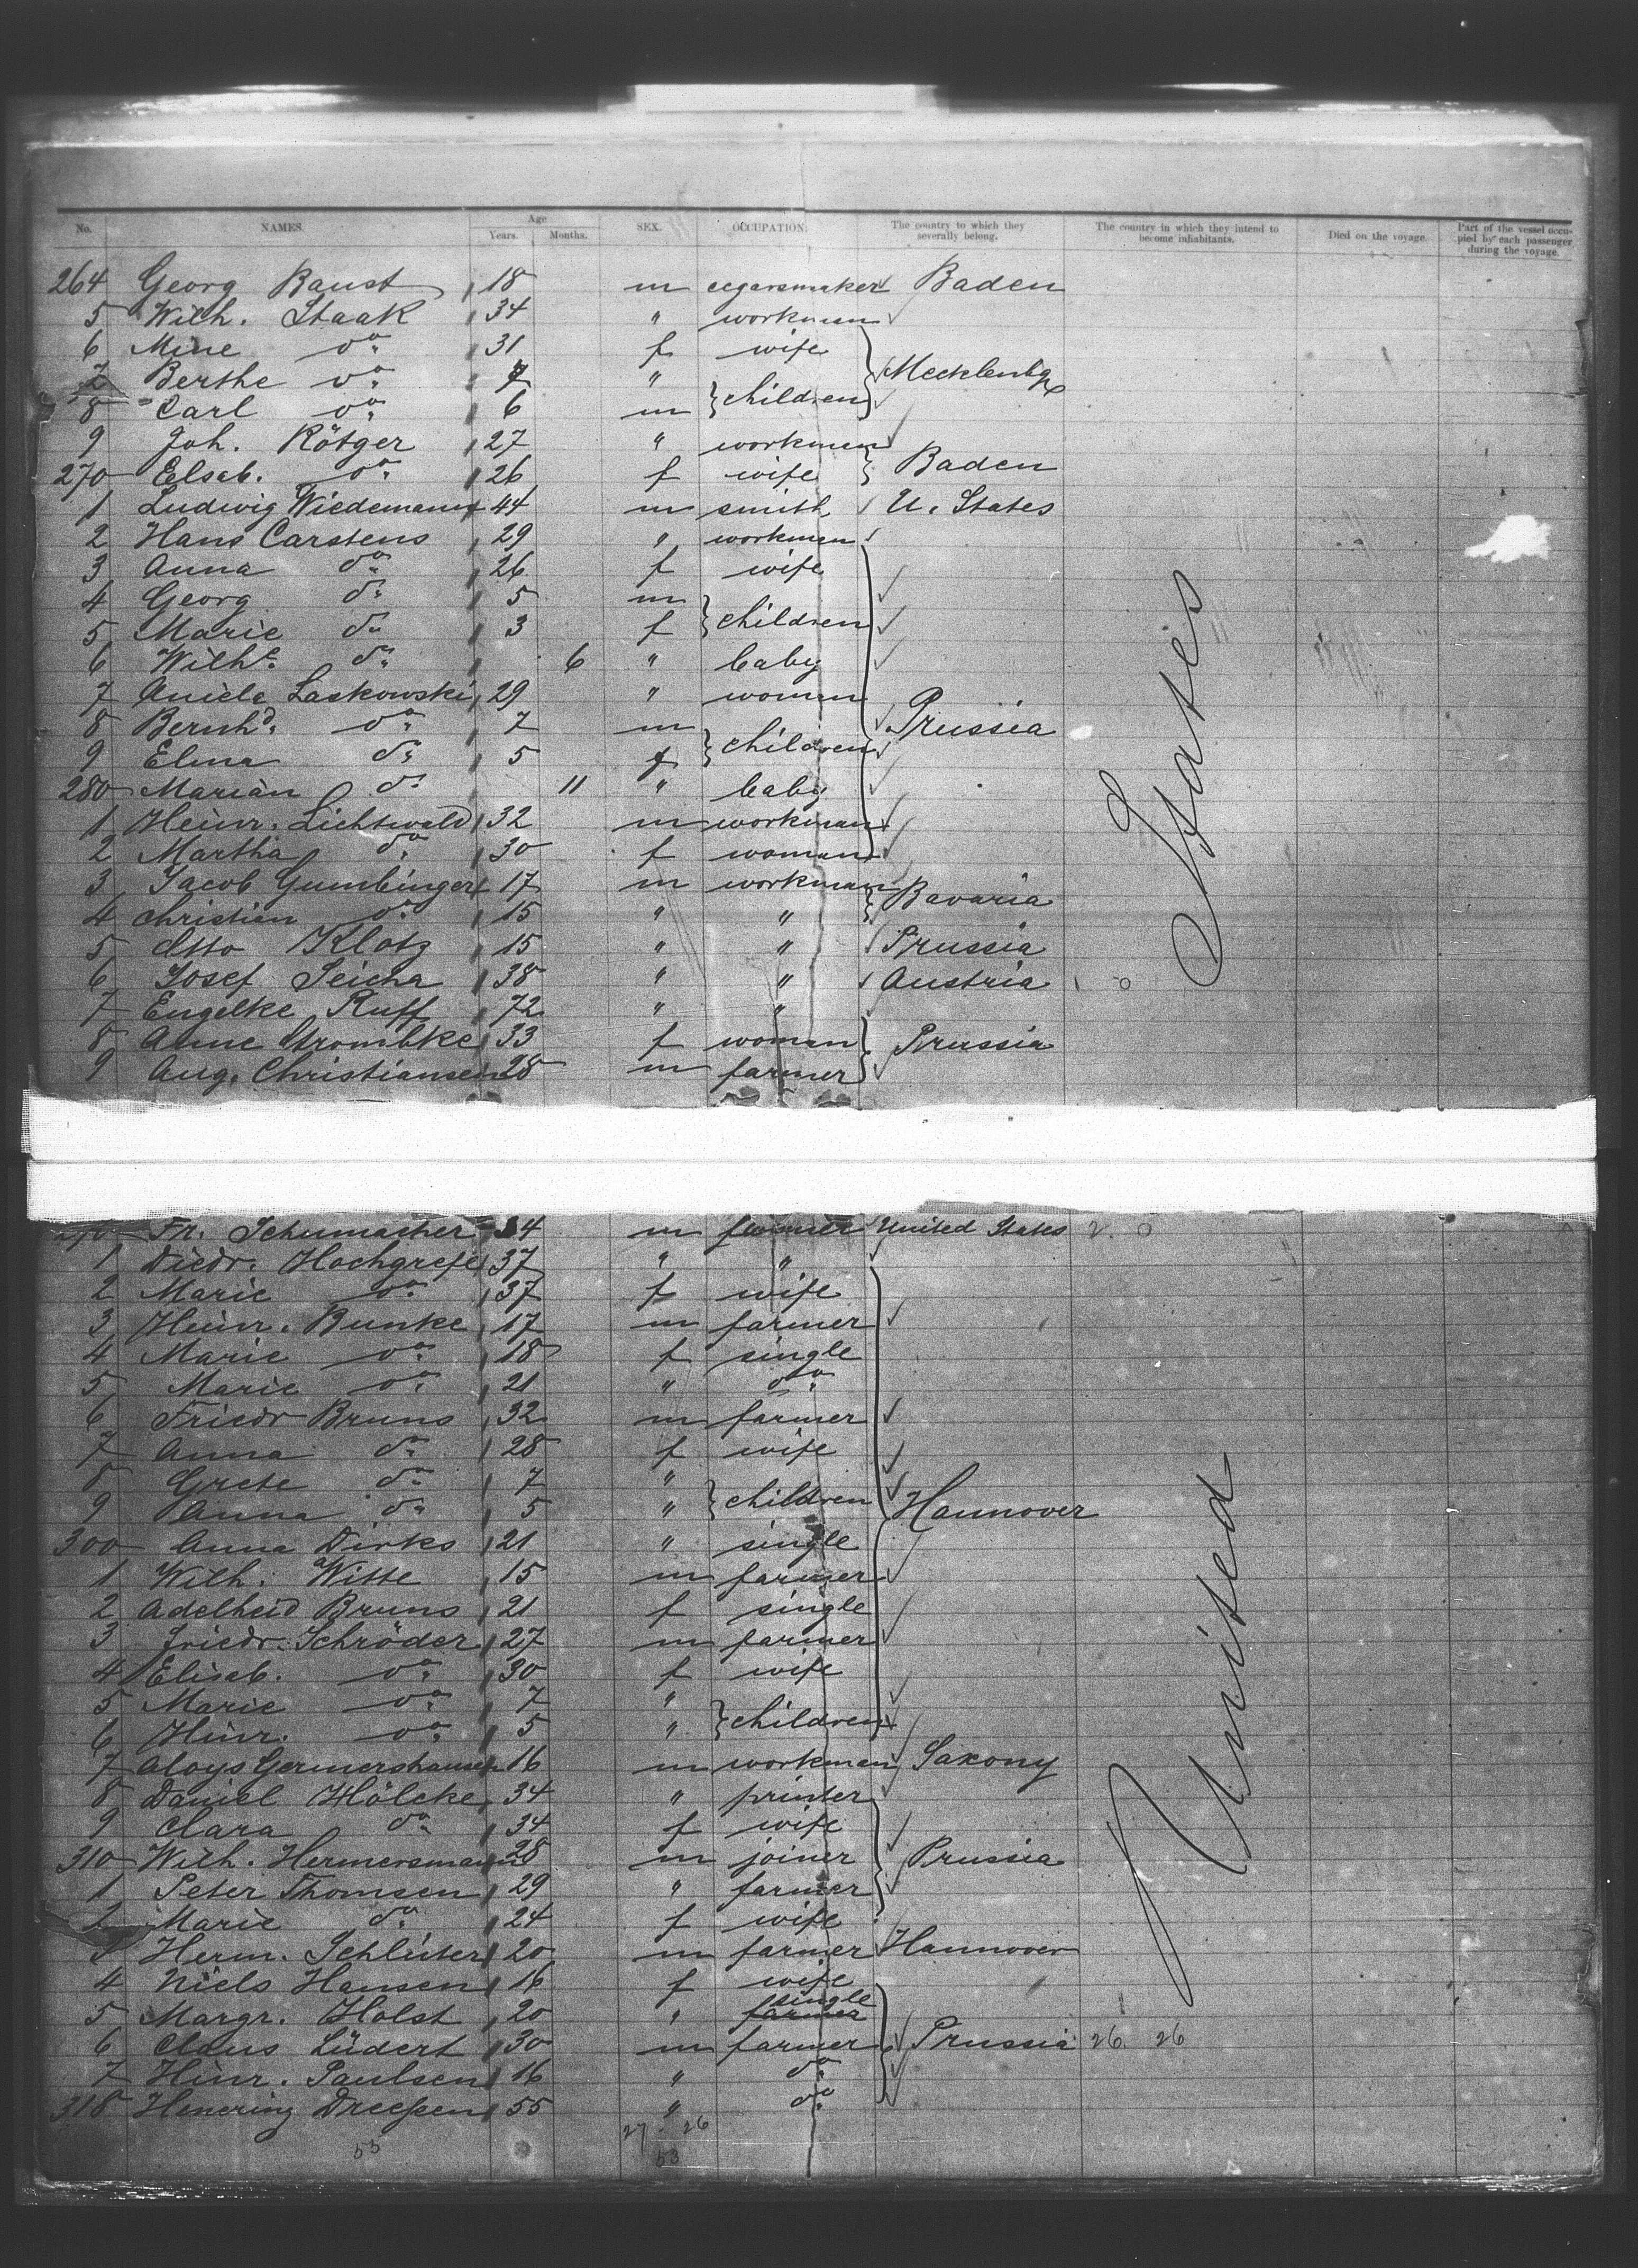 No. NAMES. Age Years. Months. SEX. OCCUPATION. The country to which they severally belong. The country in which they intend to become inhabitants. Died on the voyage. Part of the vessel occupied by each passenger during the voyage.
264 Georg Baust 18 m cegarsmaker Baden
5 Wilh. Staak 34 " workman
6 Mine do. 31 f wife
7 Berthe do. 7 " children Mecklenbg
8 Carl do. 6 m
9 Joh. Rötger 27 " workman
270 Elsab. do. 26 f wife Baden
1 Ludwig Wiedemann 44 m smith U. States
2 Hans Carstens 29 " workman
3 Anna do. 26 f wife
4 Georg do. 5 m children
5 Marie do. 3 f
6 Wilhe. do. 6 " baby
7 Aniela Laskowski 29 " woman
8 Bernhd. do. 7 m children Prussia
9 Elma do. 5 f
280 Marian do. 11 " baby
1 Heinr. Lichtwald 32 m workman
2 Martha do. 30 f woman
3 Jacob Gumbinger 17 m workman Bavaria
4 Christian do. 15 " "
5 Otto Klotz 15 " " Prussia
6 Josef Seicha 38 " " Austria 1 0
7 Engelke Ruff 72 " "
8 Anne Strombke 33 f woman Prussia
9 Aug. Christiansen 28 m farmer
States
290 Fr. Schumacher 34 m farmer United States 2. 0
1 Diedr. Hochgrefe 37 " "
2 Marie do. 37 f wife
3 Heinr. Bunke 17 m farmer
4 Marie do. 18 f single
5 Marie do. 21 " do.
6 Friedr Bruns 32 m farmer
7 Anna do. 28 f wife
8 Grete do. 7 " children
9 Anna do. 5 " Hannover
300 Anna Dirks 21 " single
1 Wilh. Witte 15 m farmer
2 Adelheid Bruns 21 f single
3 Friedr. Schröder 27 m farmer
4 Elisab. do. 30 f wife
5 Marie do. 7 " children
6 Hinr. do. 5 "
7 Aloys Germershausen 16 m workman Saxony
8 Daniel Hölcke 34 " printer
9 Clara do. 34 f wife
310 Wilh. Hermersmann 28 m joiner Prussia
1 Peter Thomsen 29 " farmer
2 Marie do. 24 f wife
3 Herm. Schlüter 20 m farmer Hannover
4 Niels Hansen 16 f wife
5 Margr. Holst 20 " farmer single
6 Claus Lüdert 30 m farmer Prussia 26. 26
7 Hinr. Paulsen 16 " do.
318 Henering Dreessen 55 " do.
United
27 26
53 53